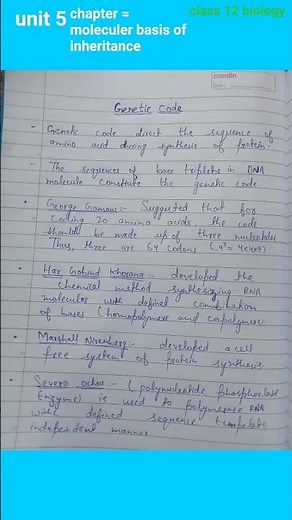 unit 5 chapter =
moleculer basis of
inheritance
class 12 biology
camlin
Genetic Code
- Genetic code direct the sequence of
amino acid during synthesis of protein.
- The sequences of base triplets in DNA
molecule constitute the genetic code
• George Gamow:- Suggested that for
coding 20 amino acids the code
should be made up of three nucleotides
Thus, there are 64 codons (4³= 4x4x4)
• Har Gobind Khorana:- developed the
chemical method synthesizing RNA
molecules with defined combination
of bases (homopolymers and copolymers
• Marshall Nirenberg:- developed a cell
free system of protein synthesis
• Severo ochoa:- (polynucleotide phosphorylase
Enzyme) is used to polymerase RNA
with defined sequence template
independent manner.